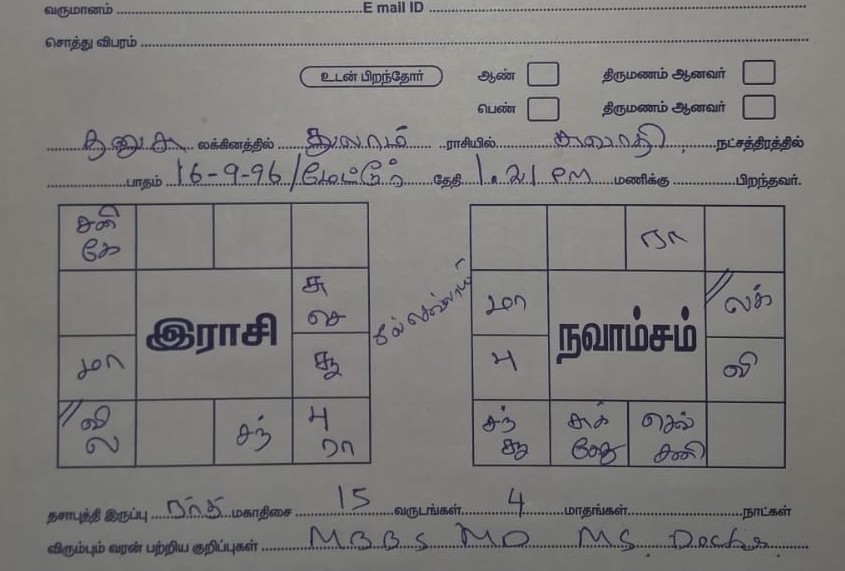 வருமானம் ........ E mail ID ........
சொத்து விபரம் ........
உடன் பிறந்தோர் ஆண் திருமணம் ஆனவர்
பெண் திருமணம் ஆனவர்
தனுசு லக்கினத்தில் துலாம் ராசியில் சுவாதி நட்சத்திரத்தில்
பாதம் 16-9-96 / மேட்டூர் தேதி 1.21 PM மணிக்கு ........ பிறந்தவர்.
சனி கே
சு செ
இராசி
மா
சூ
வி ல
சந்
பு ரா
ரா
மா
லக்
நவாம்சம்
பு
வி
சந் சூ
சுக் கேது
செவ் சனி
தசாபுத்தி இருப்பு ராகு மகாதிசை 15 வருடங்கள் 4 மாதங்கள் ........ நாட்கள்
விரும்பும் வரன் பற்றிய குறிப்புகள் MBBS MD MS. Doctor